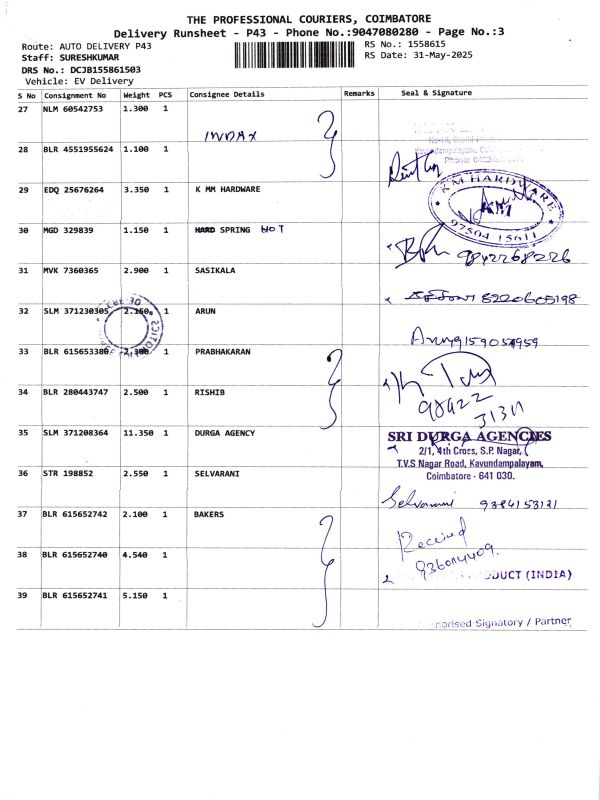 THE PROFESSIONAL COURIERS, COIMBATORE
Delivery Runsheet - P43 - Phone No.:9047080280 - Page No.:3
Route: AUTO DELIVERY P43
Staff: SURESHKUMAR
DRS No.: DCJB155861503
Vehicle: EV Delivery
RS No.: 1558615
RS Date: 31-May-2025
S No Consignment No Weight PCS Consignee Details Remarks Seal & Signature
27 NLM 60542753 1.300 1
INDAX
28 BLR 4551955624 1.100 1
Phone:
29 EDQ 25676264 3.350 1 K MM HARDWARE
KM HARDWARE
KM
97504 15611
30 MGD 329839 1.150 1 HARD SPRING HOT
9842268226
31 MVK 7360365 2.900 1 SASIKALA
8220605198
32 SLM 371230305 2.150 1 ARUN
Arun 9159054959
33 BLR 615653380 2.300 1 PRABHAKARAN
34 BLR 280443747 2.500 1 RISHIB
98422
31311
35 SLM 371208364 11.350 1 DURGA AGENCY
SRI DURGA AGENCIES
2/1, 4th Cross, S.P. Nagar,
T.V.S Nagar Road, Kavundampalayam,
Coimbatore - 641 030.
36 STR 198852 2.550 1 SELVARANI
Selvarani 9384153131
37 BLR 615652742 2.100 1 BAKERS
Received
38 BLR 615652740 4.540 1
DUCT (INDIA)
39 BLR 615652741 5.150 1
orised Signatory / Partner